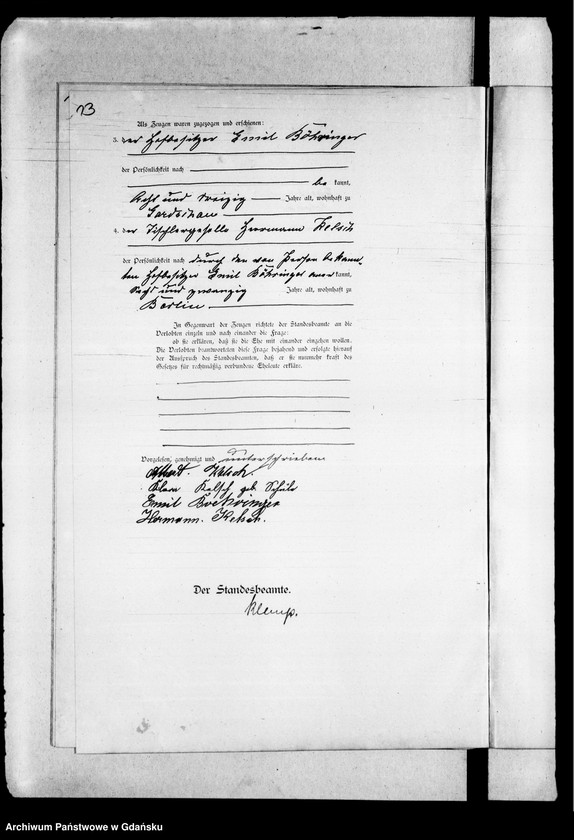 23
Als Zeugen waren zugezogen und erschienen:
3. der Hofbesitzer Emil Böhringer
der Persönlichkeit nach
be kannt,
Acht und dreizig Jahre alt, wohnhaft zu
4. der Tischlergeselle Hermann Kelsch
der Persönlichkeit nach durch den von Person bekann
ten Hofbesitzer Emil Böhringer aner kannt,
Sechs und zwanzig Jahre alt, wohnhaft zu
Berlin
In Gegenwart der Zeugen richtete der Standesbeamte an die
Verlobten einzeln und nach einander die Frage:
ob sie erklären, daß sie die Ehe mit einander eingehen wollen.
Die Verlobten beantworteten diese Frage bejahend und erfolgte hierauf
der Ausspruch des Standesbeamten, daß er sie nunmehr kraft des
Gesetzes für rechtmäßig verbundene Eheleute erkläre.
Vorgelesen, genehmigt und unterschrieben
Albert Kelsch
Klara Kelsch geb. Schulz
Emil Boehringer
Hermann Kelsch.
Der Standesbeamte.
Klemp.
Archiwum Państwowe w Gdańsku